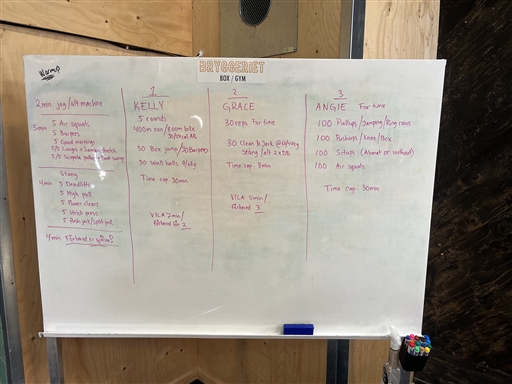 Warmup
BRYGGERIET
BOX / GYM
2 min jog/alt machine
5min 5 Air squats
5 Burpees
5 Good mornings
5/5 Lunges + Samson Stretch
5/5 Scapula pullups
Stång
4min 5 Deadlifts
5 High pull
5 Power cleans
5 Strict press
5 Push jerk/split jerk
4 min Förbered er själva?
1
KELLY
5 rounds
400m run/800m bike
30 Box jump/30 Burpees
30 wall balls 9/6kg
Time cap: 30min
VILA 2min/
Förbered för 2
2
GRACE
30 reps For time
30 Clean & Jerk
Stång/alt 2x DB
Time cap: 8min
VILA 5min/
Förbered 3
3
ANGIE For time
100 Pullups/Jumping/Ring rows
100 Pushups/Knee/Box
100 Situps (Abmat or without)
100 Air squats
Time cap: 30min